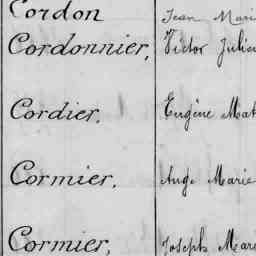 Cordon Jean Mari
Cordonnier, Victor Julien
Cordier. Eugène Mat
Cormier. Ange Marie
Cormier, Joseph Mari